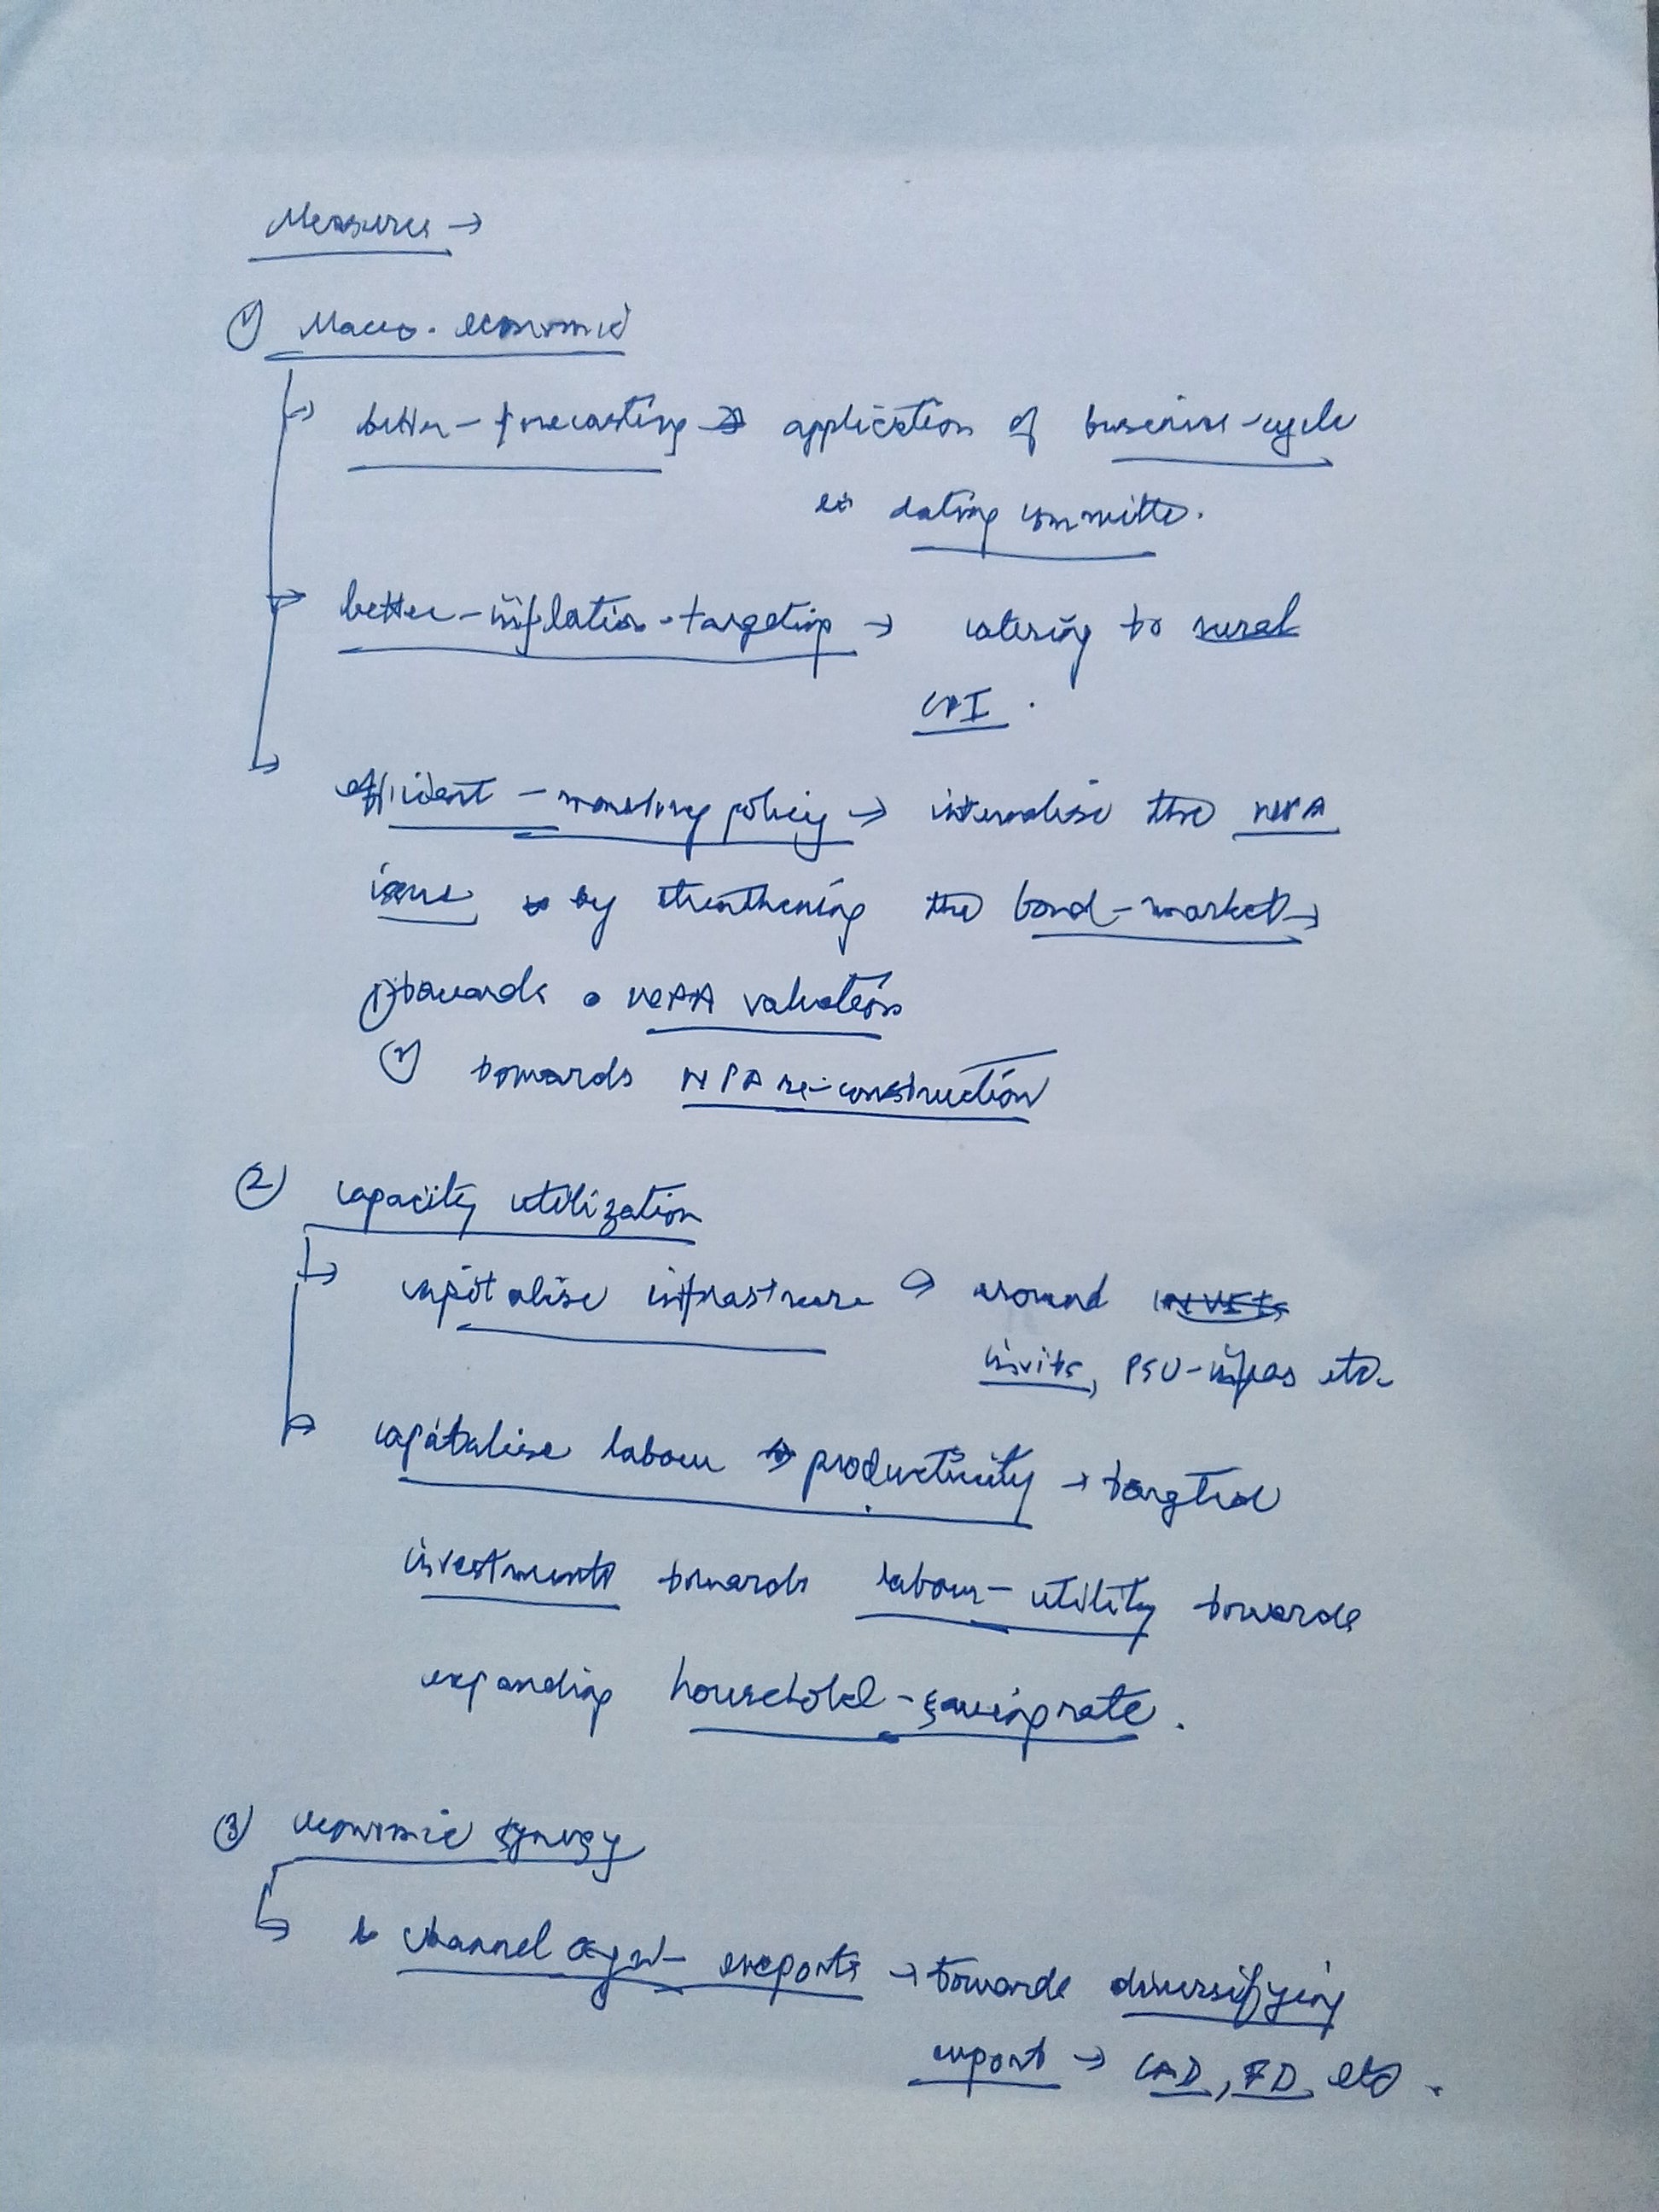 Measures →
① Macro-economic
→ better-forecasting → application of business-cycle
dating committe.
→ better-inflation-targeting → catering to rural
CPI.
→ efficient-monetary policy → internalise the NPA
issue by strenthening the bond-market →
① towards NPA valuation
② towards NPA re-construction
② capacity utilization
→ capitalise infrastrure → around
invits, PSU-infras etc.
→ capitalise labour productivity → targted
investments towards labour-utility towards
expanding household-saving rate.
③ economic synergy
↳ channel exports → towards diversifying
export → CAD, FD etc.